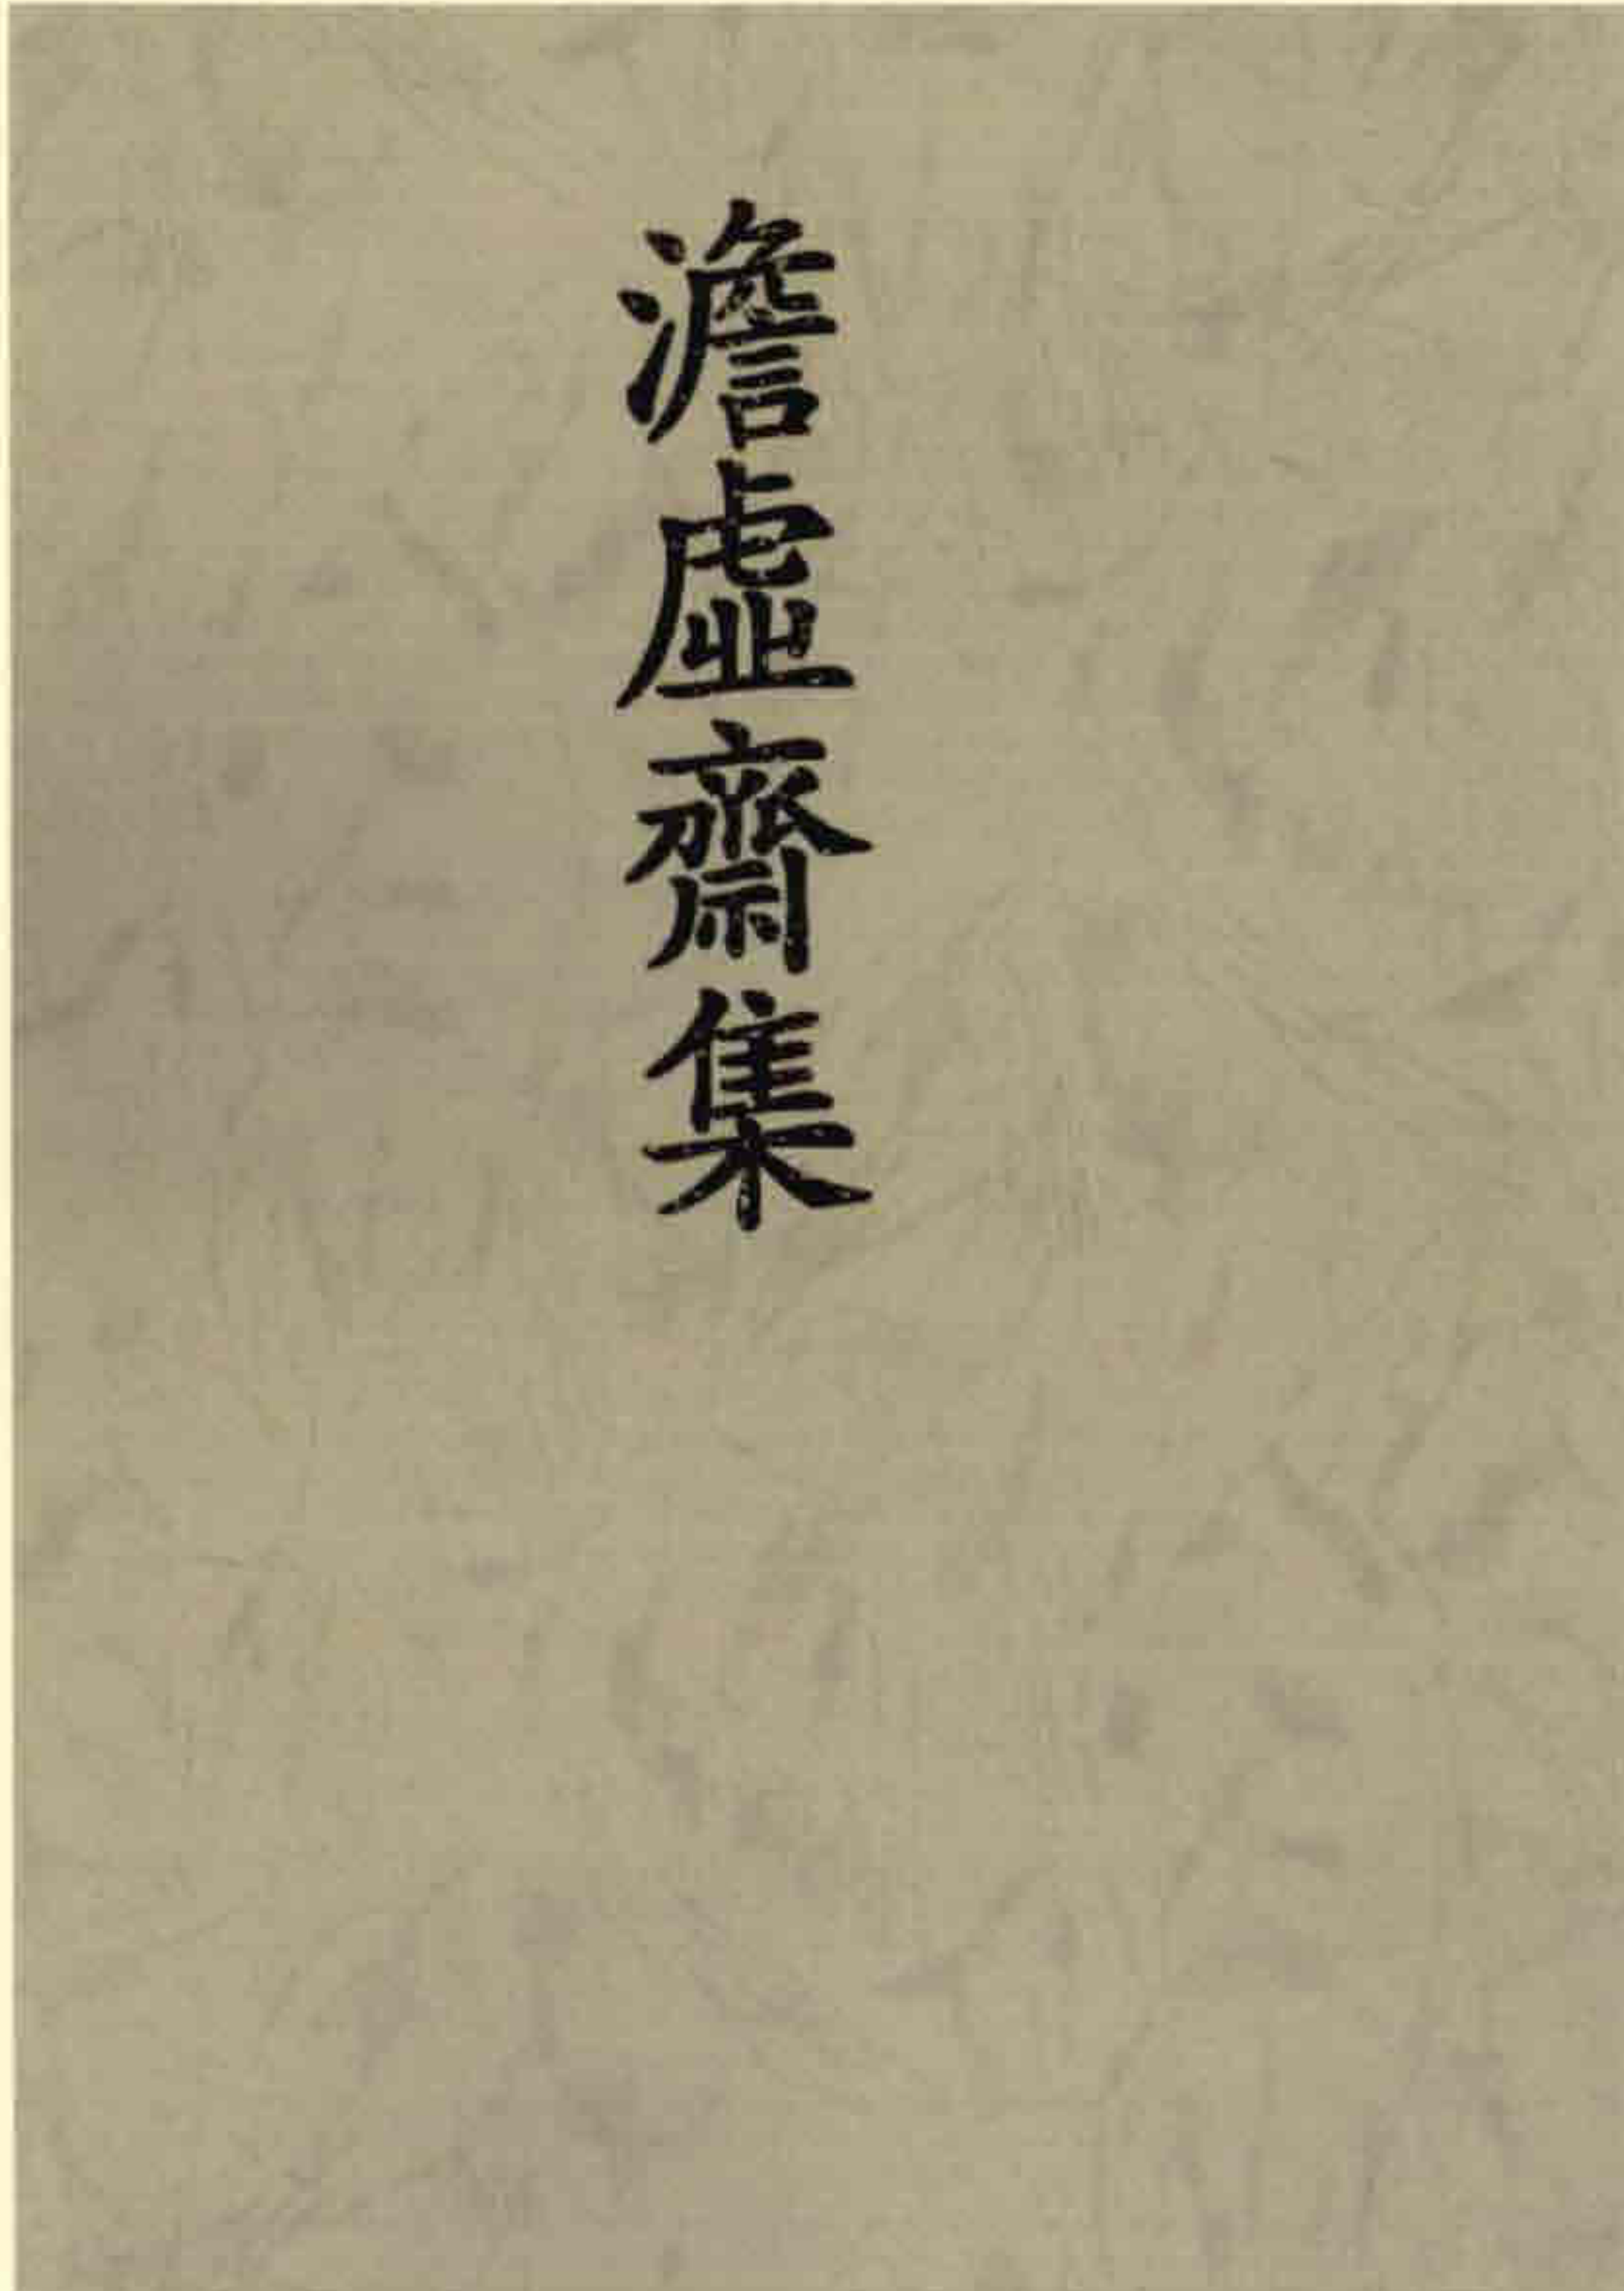 澹虛齋集